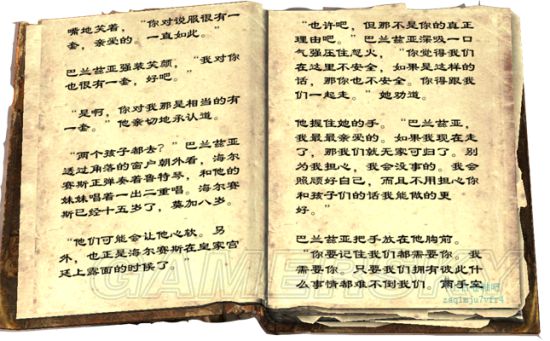 嘴地笑着，“你对说服很有一
套，亲爱的。一直如此。”
巴兰兹亚强装笑颜，“我对你
也很有一套，好吧。”
“是啊，你对我那是相当的有
一套。”他亲切地承认道。
“两个孩子都去？”巴兰兹亚
透过角落的窗户朝外看，海尔
赛斯正弹奏着鲁特琴，和他的
妹妹唱着一出二重唱。海尔赛
斯已经十五岁了，莫加八岁。
“他们可能会让他心软。另
外，也正是海尔赛斯在皇家宫
廷上露面的时候了。”
“也许吧，但那不是你的真正
理由吧。”巴兰兹亚深吸一口
气强压住怒火，“你觉得我们
在这里不安全，如果是这样的
话，那你也不安全。你得跟我
们一起走。”她劝道。
他握住她的手。“巴兰兹亚，
我最最亲爱的。如果我现在走
了，那我们就无家可归了。别
为我担心，我会没事的。我会
照顾好自己，而且不用担心你
和孩子们的话我能做的更
好。”
巴兰兹亚把手放在他胸前。
“你要记住我们都需要你，我
需要你。只要我们拥有彼此什
么事情都难不倒我们。两手空
GAMERSKY
zaqimju7vfr4